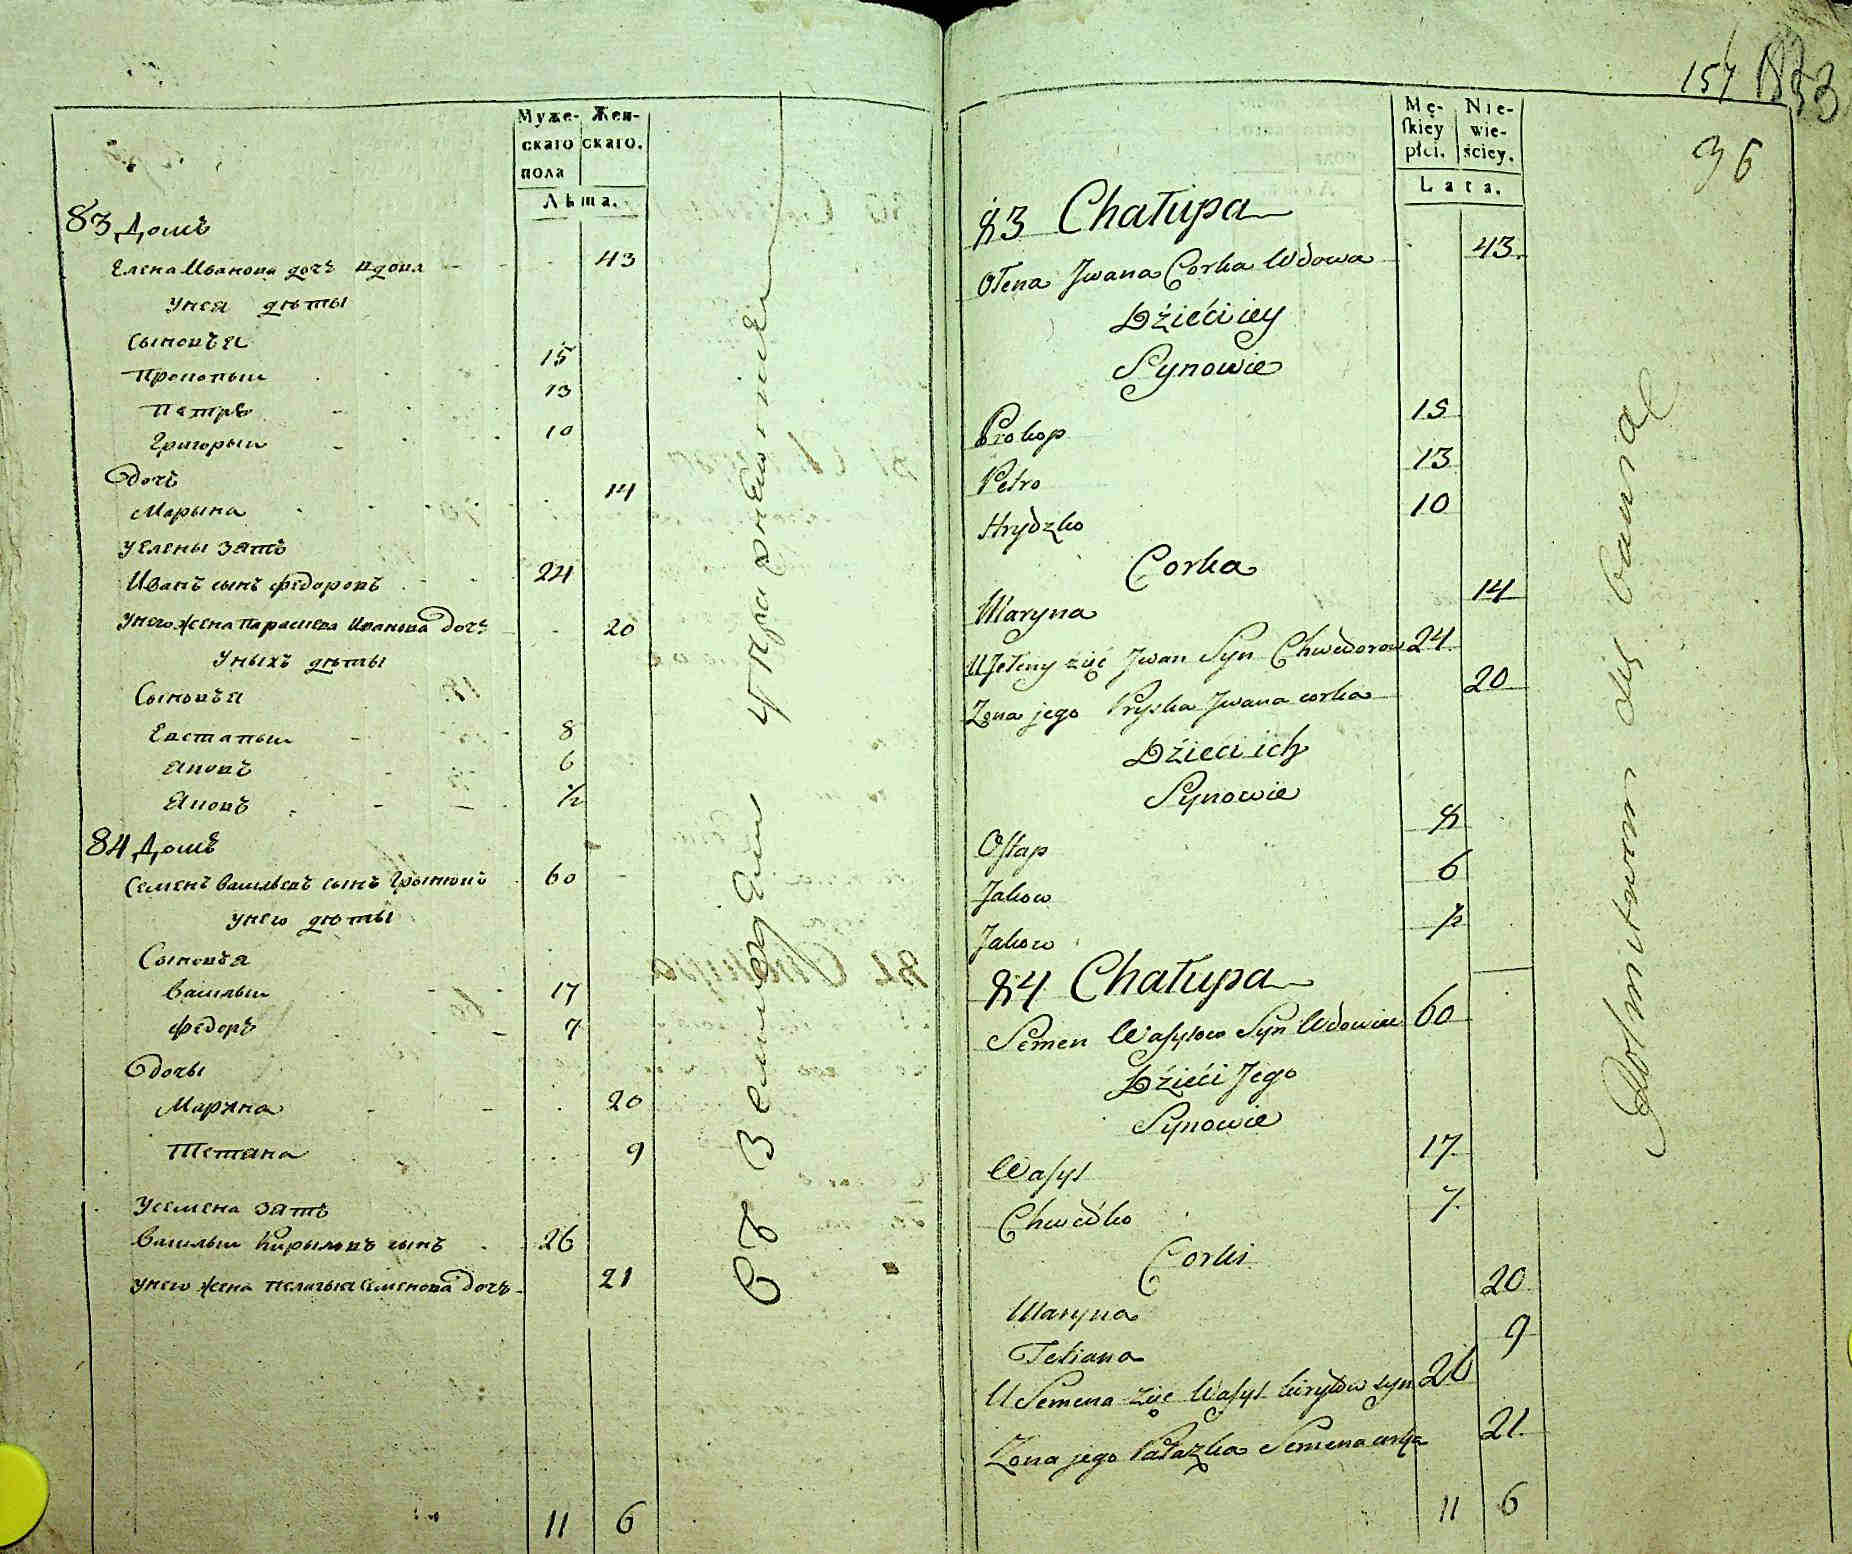 Муже-
скаго
пола
Жен-
скаго.
Лѣта.
83 Домъ
Елена Иванова дочь вдова 43
У нея дѣты
Сыновья
Прокопыи 15
Петръ 13
Григорыи 10
дочь
Марына 14
У Елены зять
Иванъ сынъ Федоровъ 24
У него жена Параскева Иванова дочь 20
У ныхъ дѣты
Сыновья
Евстапыи 8
Яковъ 6
Яковъ ½
84 Домъ
Семенъ Васильевъ сынъ 60
У него дѣты
Сыновья
Василыи 17
Федоръ 7
дочы
Марына 20
Тетяна 9
У Семена зять
Василыи Кирыловъ сынъ 26
У него жена Пелагыя Семенова дочь 21
11 6
Съ Земледелия
157
36
Mę-
skiey
płci.
Nie-
wie-
ściey.
Lata.
83 Chałupa
Ołena Jwana Corka Wdowa 43
Dźieći iey
Synowie
Prokop 15
Petro 13
Hrydzko 10
Corka
Maryna 14
U Jeleny zięć Jwan Syn Chwedorow 24
Zona jego Pryska Jwana corka 20
Dźieci ich
Synowie
Ostap 8
Jakow 6
Jakow ½
84 Chałupa
Semen Wasylow Syn Wdowiec 60
Dźieći Jego
Synowie
Wasyl 17
Chwedko 7
Corki
Maryna 20
Tetiana 9
U Semena zięć Wasyl Kiryłow syn 26
Zona jego Pałazka Semena corka 21
11 6
Rolnictwem się bawią